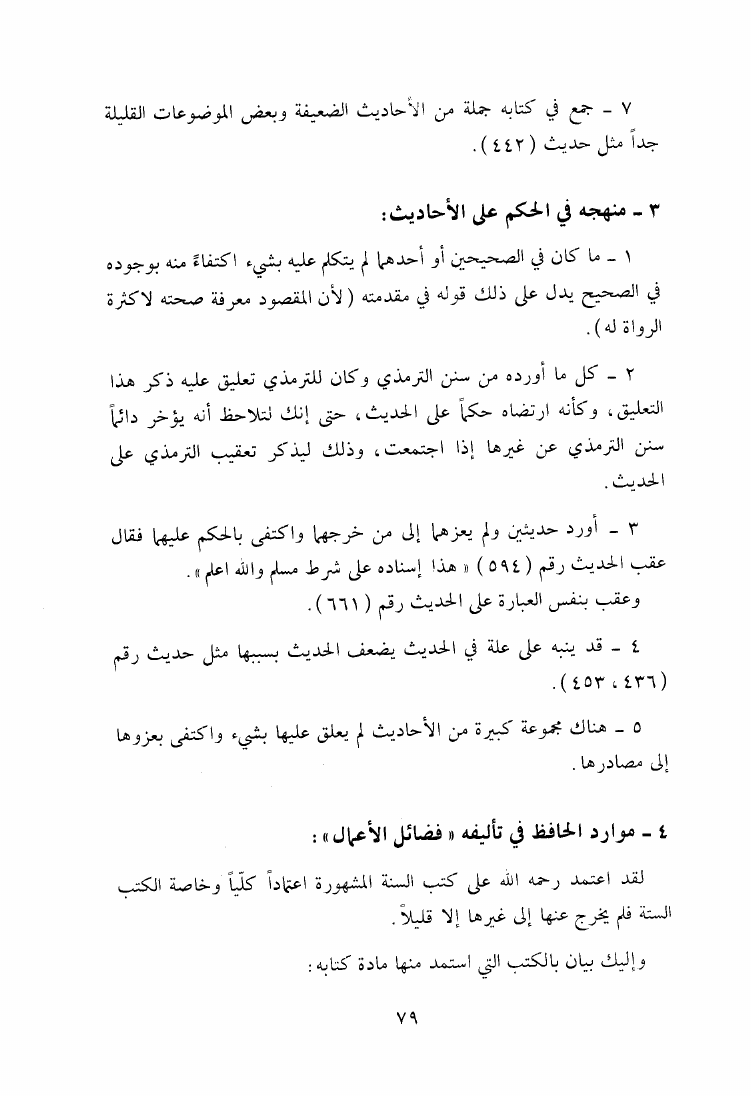 ٧ - جمع في كتابه جملة من الأحاديث الضعيفة وبعض الموضوعات القليلة
جداً مثل حديث (٤٤٢).
٣ - منهجه في الحكم على الأحاديث:
١ - ما كان في الصحيحين أو أحدهما لم يتكلم عليه بشيء اكتفاءً منه بوجوده
في الصحيح يدل على ذلك قوله في مقدمته (لأن المقصود معرفة صحته لا كثرة
الرواة له).
٢ - كل ما أورده من سنن الترمذي وكان للترمذي تعليق عليه ذكر هذا
التعليق، وكأنه ارتضاه حكماً على الحديث، حتى إنك لتلاحظ أنه يؤخر دائماً
سنن الترمذي عن غيرها إذا اجتمعت، وذلك ليذكر تعقيب الترمذي على
الحديث.
٣ - أورد حديثين ولم يعزهما إلى من خرجهما واكتفى بالحكم عليهما فقال
عقب الحديث رقم (٥٩٤) «هذا إسناده على شرط مسلم والله اعلم».
وعقب بنفس العبارة على الحديث رقم (٦٦١).
٤ - قد ينبه على علة في الحديث يضعف الحديث بسببها مثل حديث رقم
(٤٣٦، ٤٥٣).
٥ - هناك مجموعة كبيرة من الأحاديث لم يعلق عليها بشيء واكتفى بعزوها
إلى مصادرها.
٤ - موارد الحافظ في تأليفه «فضائل الأعمال»:
لقد اعتمد رحمه الله على كتب السنة المشهورة اعتماداً كلّياً وخاصة الكتب
الستة فلم يخرج عنها إلى غيرها إلا قليلاً.
وإليك بيان بالكتب التي استمد منها مادة كتابه:
٧٩